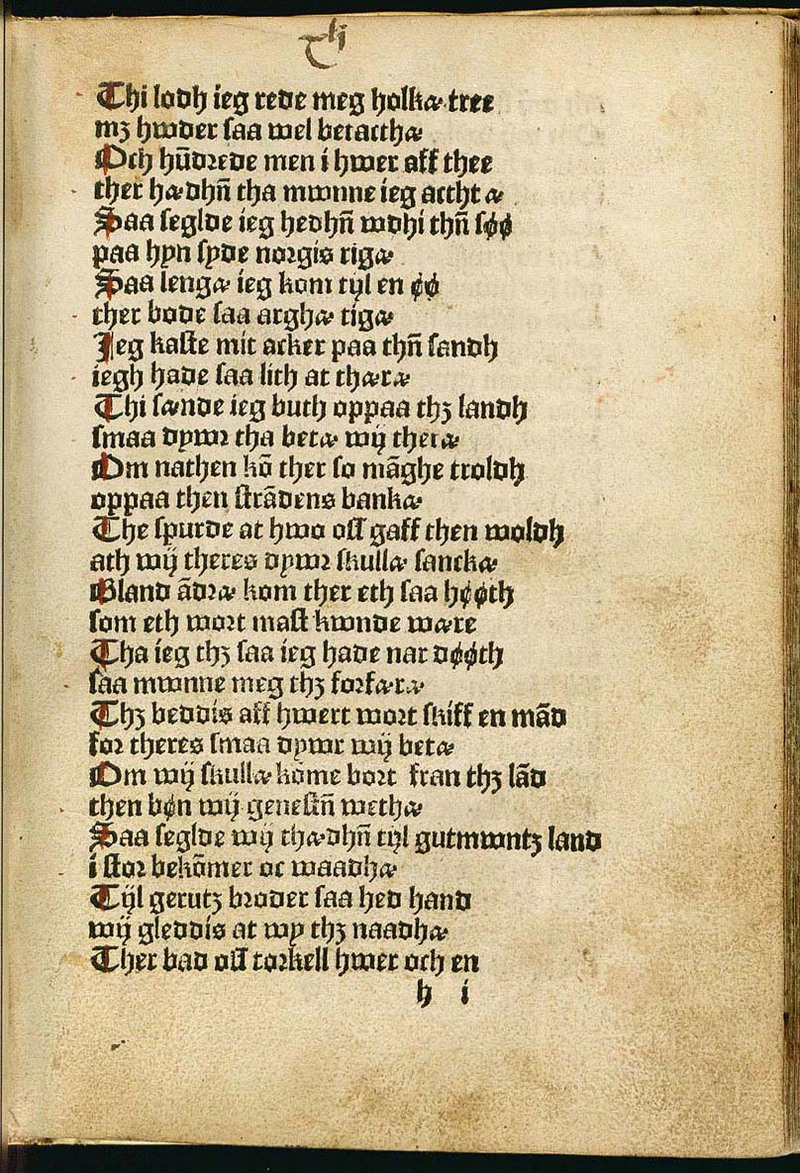 Thi lodh ieg rede meg holkæ tree
mꝫ hwder saa wel betacthæ
Och hūdrede men i hwer aff thee
ther hædhn̄ tha mwnne ieg accht æ
Saa seglde ieg hedhn̄ wdhi thn̄ søø
paa hyn syde norgis rigæ
Saa lengæ ieg kom tijl en øø
ther bode saa arghæ tigæ
Jeg kaste mit acker paa thn̄ sandh
iegh hade saa lith at thæræ
Thi sænde ieg buth oppaa thꝫ landh
smaa dywr tha betæ wij theræ
Om nathen kō ther so māghe troldh
oppaa then strādens bankæ
The spurde at hwo oss gaff then woldh
ath wij theres dywr skullæ sanckæ
Bland ādræ kom ther eth saa høøth
som eth wort mast kwnde wære
Tha ieg thꝫ saa ieg hade nar døøth
saa mwnne meg thꝫ forfæræ
Thꝫ beddis aff hwert wort skiff en mād
for theres smaa dywr wij betæ
Om wij skullæ kōme bort fran thꝫ lād
then bøn wij genestn̄ wethæ
Saa seglde wij thædhn̄ tijl gutmwntꝫ land
i stor bekōmer oc waadhæ
Tijl gerutꝫ broder saa hed hand
wij gleddis at wy thꝫ naadhæ
Ther bad oss torkell hwer och en
h i